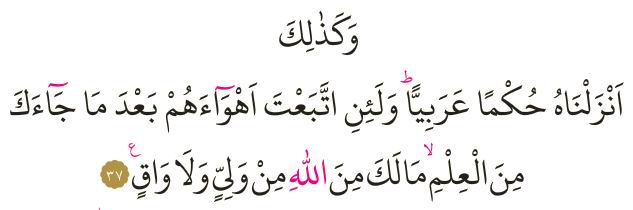 وَكَذٰلِكَ
اَنْزَلْنَاهُ حُكْمًا عَرَبِيًّاؕ وَلَئِنِ اتَّبَعْتَ اَهْوَٓاءَهُمْ بَعْدَ مَا جَٓاءَكَ
مِنَ الْعِلْمِۙ مَا لَكَ مِنَ اللّٰهِ مِنْ وَلِيٍّ وَلَا وَاقٍ۟ ﴿٣٧﴾